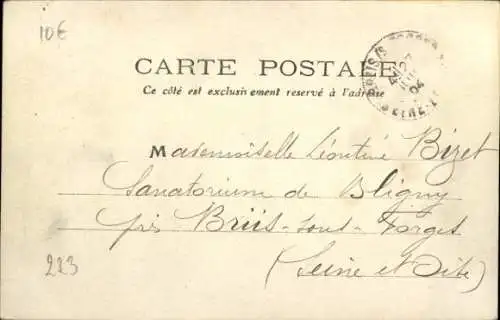 10€
CARTE POSTALE
Ce côté est exclusivement reservé à l'adresse
Mademoiselle Léontine Bizet
Sanatorium de Bligny
près Briis-sous-Forges
223
(Seine et Oise)